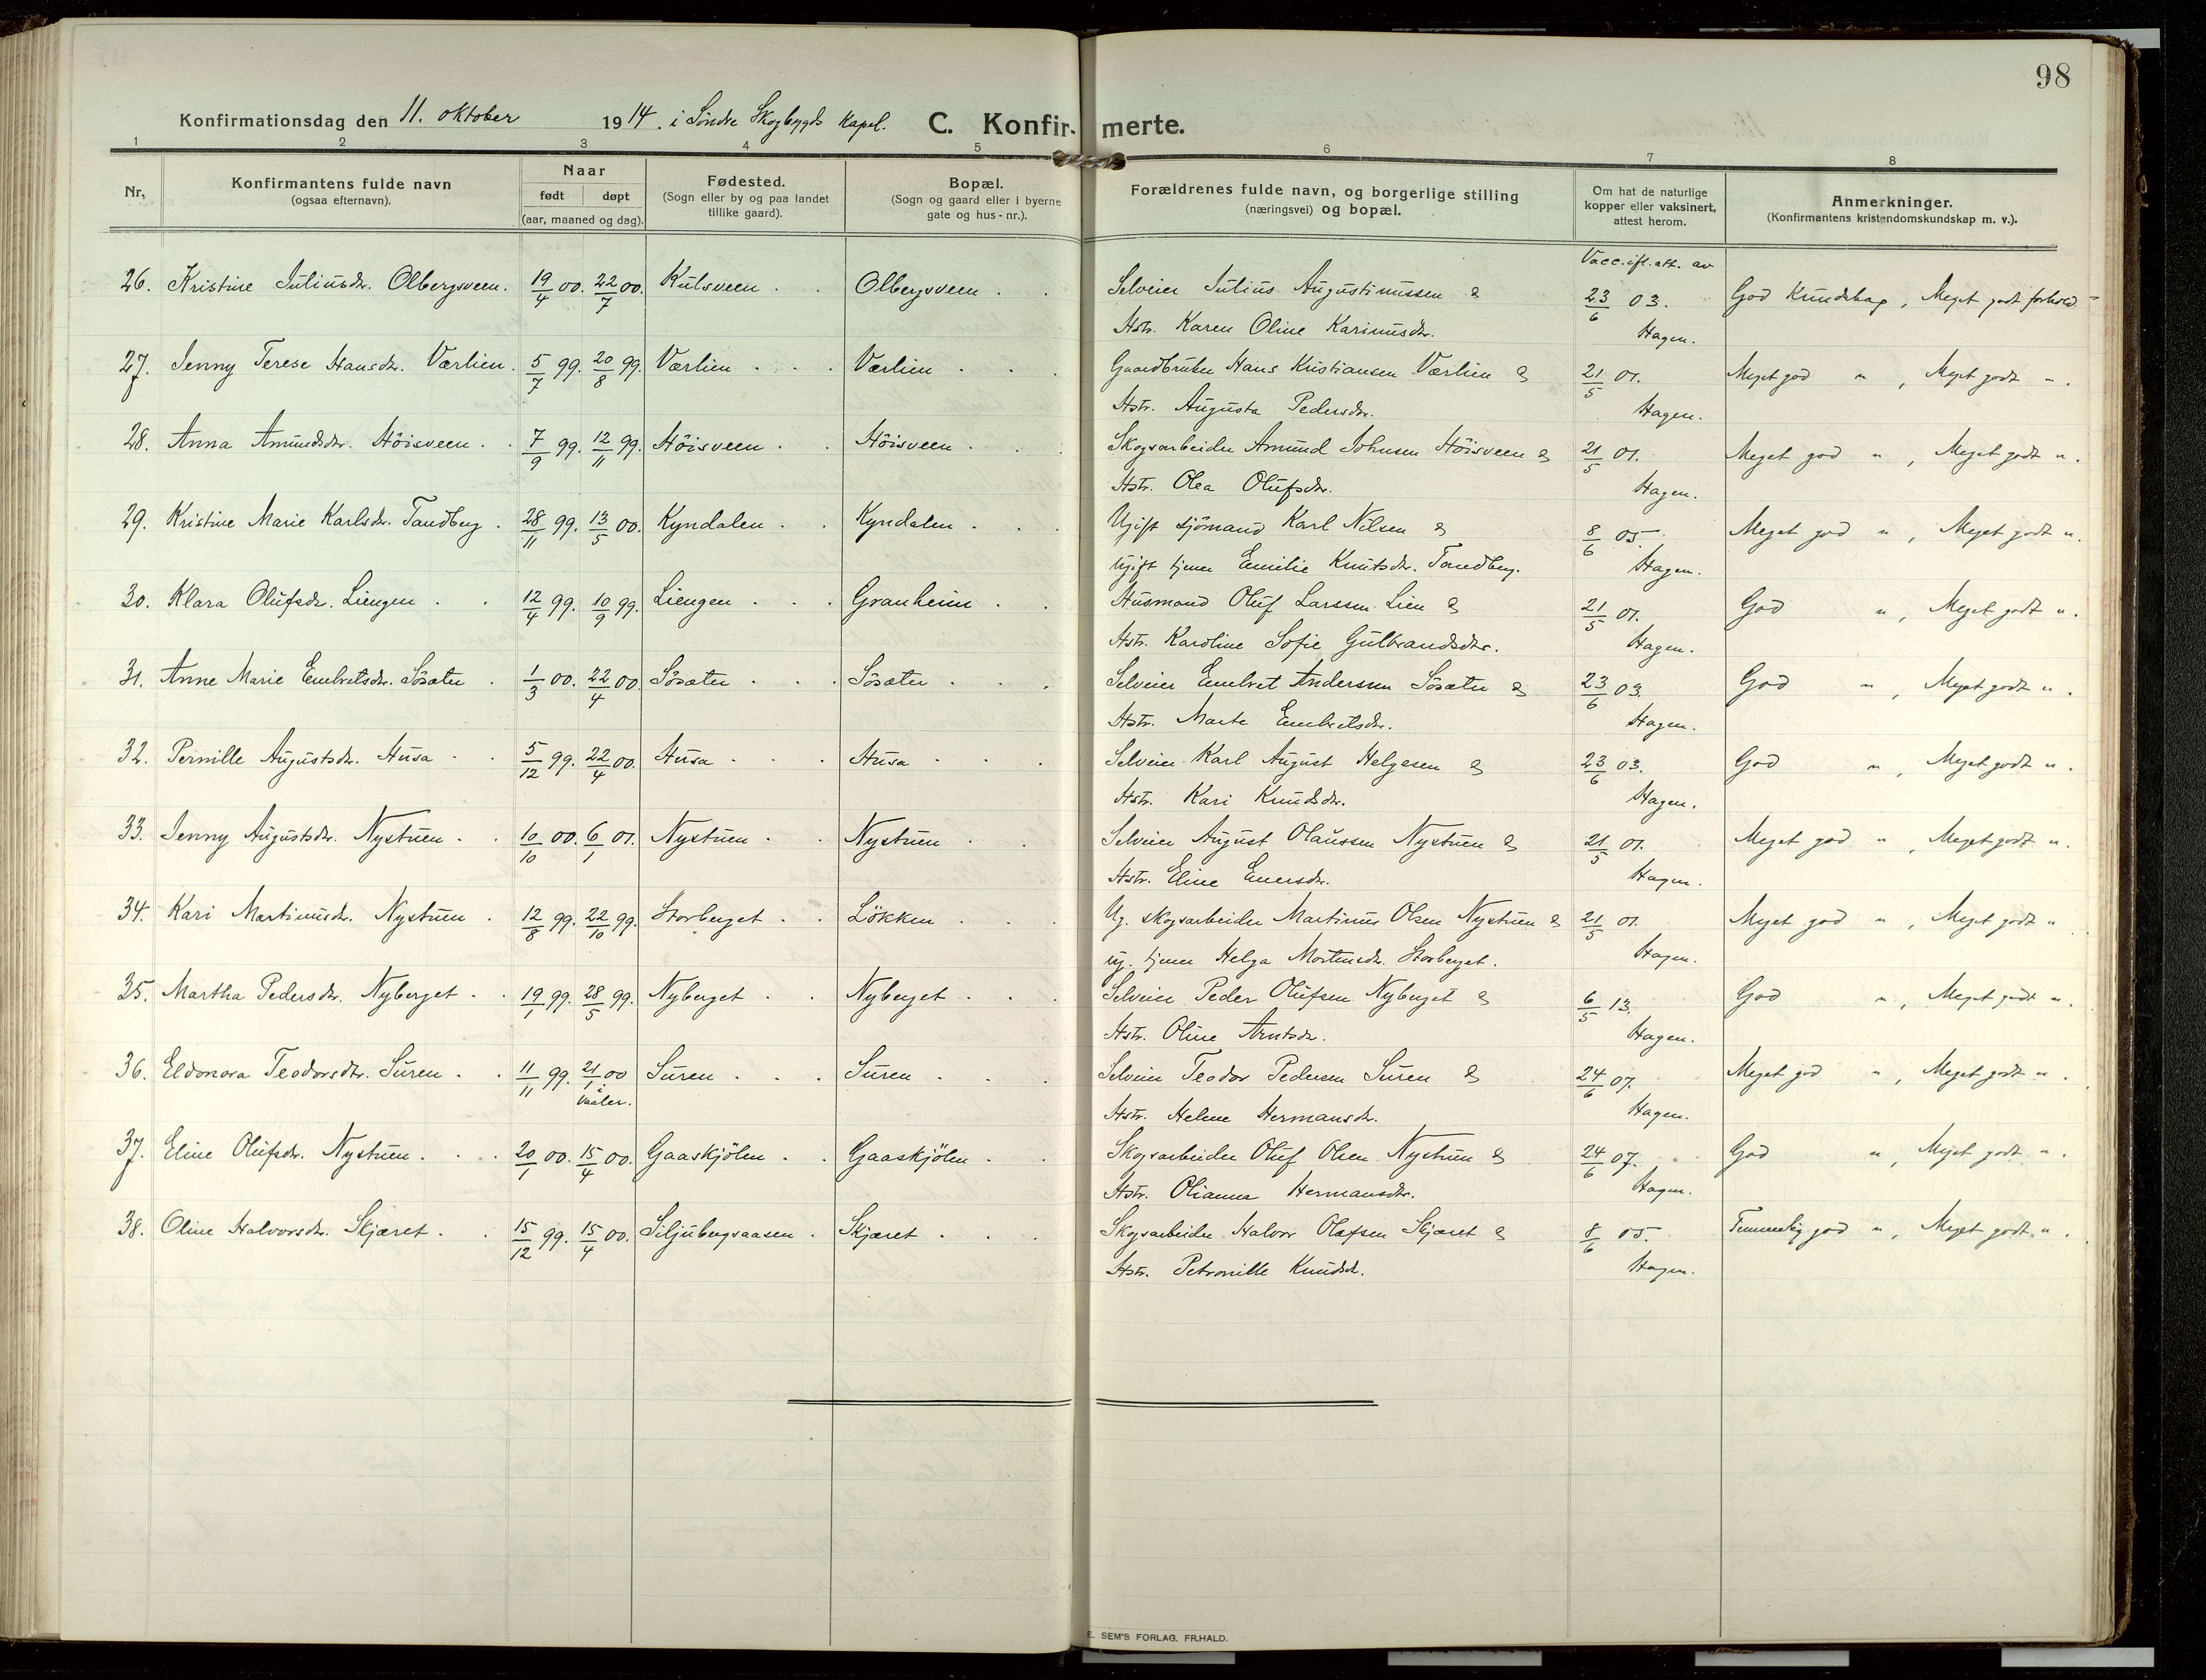 98
Konfirmationsdag den 11. oktober 1914. i Søndre Skogbygds Kapel. C. Konfir- merte.
1 2 3 4 5 6 7 8
Nr. Konfirmantens fulde navn (ogsaa efternavn). Naar født døpt (aar, maaned og dag). Fødested. (Sogn eller by og paa landet tillike gaard). Bopæl. (Sogn og gaard eller i byerne gate og hus-nr.). Forældrenes fulde navn, og borgerlige stilling (næringsvei) og bopæl. Om hat de naturlige kopper eller vaksinert, attest herom. Anmerkninger. (Konfirmantens kristendomskundskap m. v.).
Vacc. ifl. att. av
26. Kristine Juliusdr. Olbergsveen. 19/4 00. 22/7 00. Kulsveen . . Olbergsveen . . Selveier Julius Augustinussen & 23/6 03. God Kundskap, Meget godt forhold
Hstr. Karen Oline Karinusdr. Hagen.
27. Jenny Terese Hansdr. Værlien. 5/7 99. 20/8 99. Værlien . . . Værlien . . . Gaardbruker Hans Kristiansen Værlien & 21/5 01. Meget god " , Meget godt " .
Hstr. Augusta Pedersdr. Hagen.
28. Anna Amundsdr. Höisveen . . 7/9 99. 12/11 99. Höisveen . . Höisveen . . . Skogsarbeider Amund Johnsen Höisveen & 21/5 01. Meget god " , Meget godt " .
Hstr. Olea Olufsdr. Hagen.
29. Kristine Marie Karlsdr. Tandberg . 28/11 99. 13/5 00. Kyndalen . . Kyndalen . . . Ugift sjömand Karl Nilsen & 8/6 05. Meget god " , Meget godt " .
Ugift tjener Emilie Knutsdr. Tandberg. Hagen.
30. Klara Olufsdr. Liengen . . 12/4 99. 10/9 99. Liengen . . . Granheim . . Husmand Oluf Larssen Lien & 21/5 01. God " , Meget godt " .
Hstr. Karoline Sofie Gulbrandsdtr. Hagen.
31. Anne Marie Embretsdr. Sösæter . 1/3 00. 22/4 00 Sösæter . . . Sösæter . . . Selveier Embret Andersen Sösæter & 23/6 03. God " , Meget godt " .
Hstr. Marte Embretsdr. Hagen.
32. Pernille Augustsdr. Husa . . 5/12 99. 22/4 00. Husa . . . Husa . . . Selveier Karl August Helgesen & 23/6 03. God " , Meget godt " .
Hstr. Kari Knudsdr. Hagen.
33. Jenny Augustsdr. Nystuen . . 10/10 00. 6/1 01. Nystuen . . Nystuen . . Selveier August Olaussen Nystuen & 21/5 01. Meget god " , Meget godt " .
Hstr. Eline Enersdr. Hagen.
34. Kari Martinusdr. Nystuen . 12/8 99. 22/10 99. Storberget . . Lökken . . . Ug. skogsarbeider Martinus Olsen Nystuen & 21/5 01. Meget god " , Meget godt " .
ug. tjener Helga Mortensdr. Storberget. Hagen.
35. Martha Pedersdtr. Nyberget . . 19/1 99. 28/5 99. Nyberget . . Nyberget . . . Selveier Peder Olufsen Nyberget & 6/5 13. God " , Meget godt " .
Hstr. Oline Arntsdr. Hagen.
36. Eldonora Teodorsdtr. Suren . . 11/11 99. 21/1 00 i Vaaler. Suren . . . Suren . . . Selveier Teodor Pedersen Suren & 24/6 07. Meget god " , Meget godt " .
Hstr. Helene Hermansdr. Hagen.
37. Eline Olufsdr. Nystuen . . . 20/1 00. 15/4 00. Gaaskjölen . . Gaaskjölen . . Skogsarbeider Oluf Olsen Nystuen & 24/6 07. God " , Meget godt " .
Hstr. Olianna Hermansdtr. Hagen.
38. Oline Halvorsdr. Skjæret . . 15/12 99. 15/4 00. Siljubergsaasen . Skjæret . . . Skogsarbeider Halvor Olafsen Skjæret & 8/6 05. Temmelig god " , Meget godt " .
Hstr. Petronille Knudsd. Hagen.
E. SEM'S FORLAG, FR.HALD.